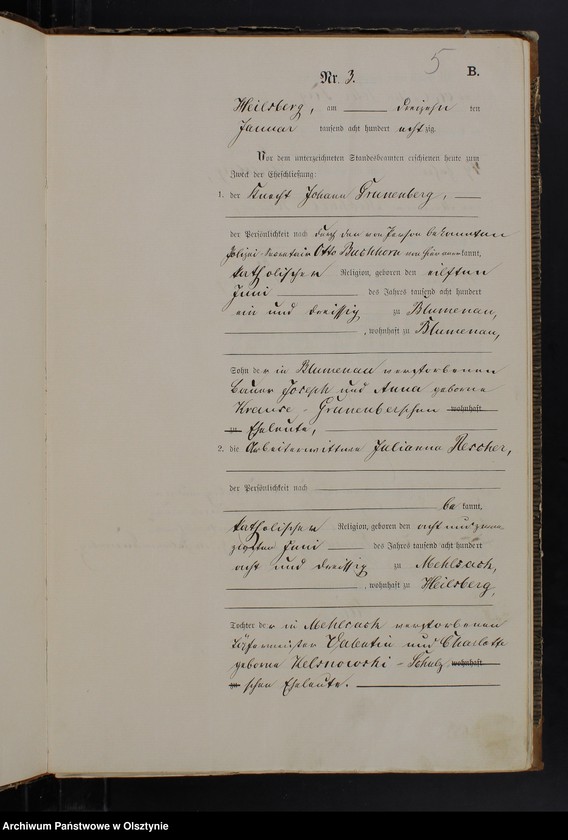 5
Nr. 3.
B.
Heilsberg, am dreizehn ten
Januar tausend acht hundert achtzig.
Vor dem unterzeichneten Standesbeamten erschienen heute zum
Zweck der Eheschließung:
1. der Knecht Johann Grunenberg,
der Persönlichkeit nach durch den von Person bekannten
Polizei-Secretair Otto Buchhorn von hier anerkannt,
katholischer Religion, geboren den eilften
Juni des Jahres tausend acht hundert
ein und dreissig zu Blumenau,
, wohnhaft zu Blumenau,
Sohn der in Blumenau verstorbenen
Bauer Joseph und Anna geborne
Krause - Grunenbergschen wohnhaft
zu Eheleute,
2. die Arbeiterwittwe Julianna Rescher,
der Persönlichkeit nach
bekannt,
katholischer Religion, geboren den acht und zwan
zigsten Juni des Jahres tausend acht hundert
acht und dreissig zu Mehlsack,
, wohnhaft zu Heilsberg,
Tochter der in Mehlsack verstorbenen
Töpfermeister Valentin und Charlotte
geborne - Schulz wohnhaft
zu schen Eheleute.
Archiwum Państwowe w Olsztynie